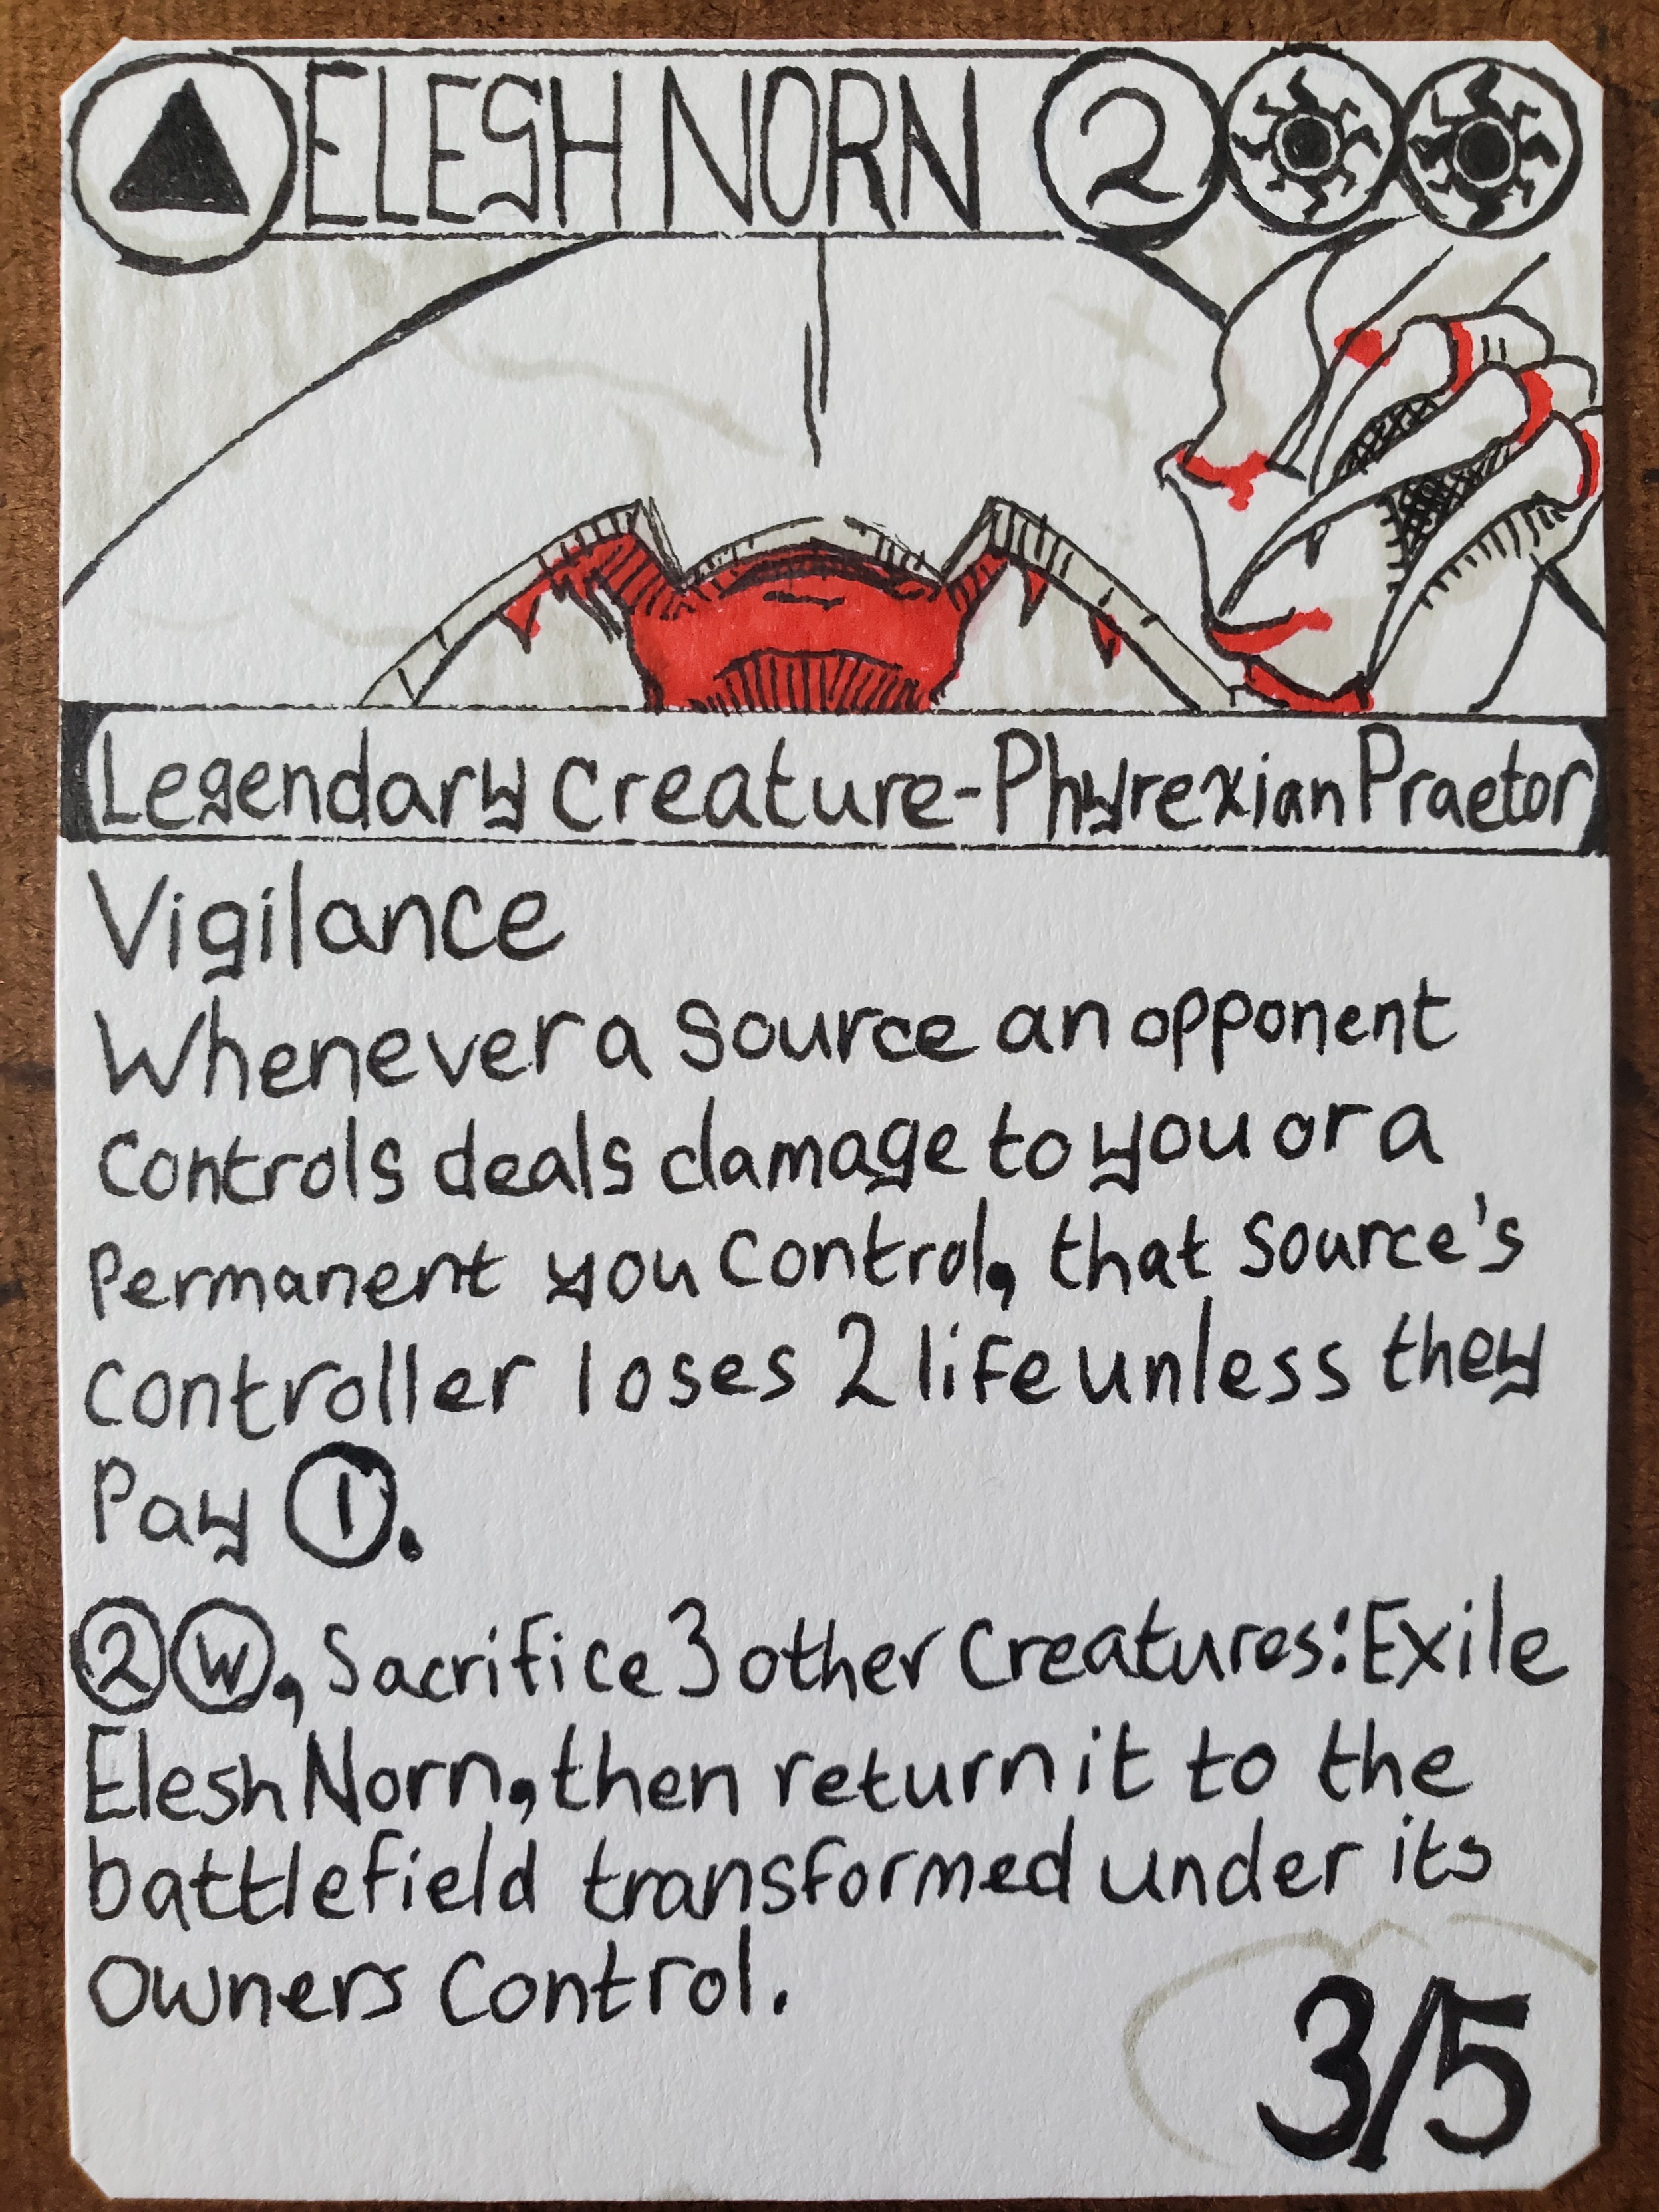 ELESH NORN 2
Legendary Creature-Phyrexian Praetor
Vigilance
Whenever a source an opponent
Controls deals damage to you or a
Permanent you control, that source's
controller loses 2 life unless they
Pay 1.
2 W, Sacrifice 3 other Creatures: Exile
Elesh Norn, then return it to the
battlefield transformed under its
Owners Control.
3/5